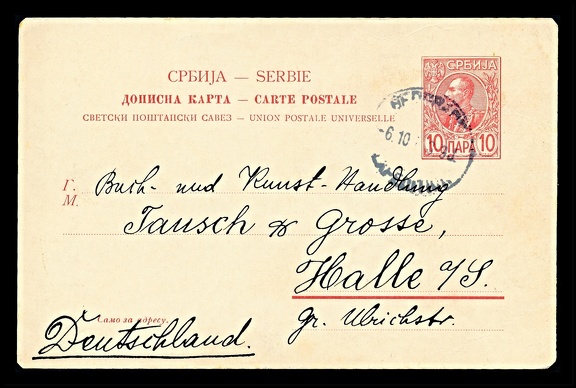 СРБИЈА — SERBIE
ДОПИСНА КАРТА — CARTE POSTALE
СВЕТСКИ ПОШТАНСКИ САВЕЗ — UNION POSTALE UNIVERSELLE
СРБИЈА
10 ПАРА 10
-6.10
Г.
М.
Buch- und Kunst-Handlung
Tausch & Grosse,
Halle a/S.
gr. Ulrichstr.
Само за адресу.
Deutschland.